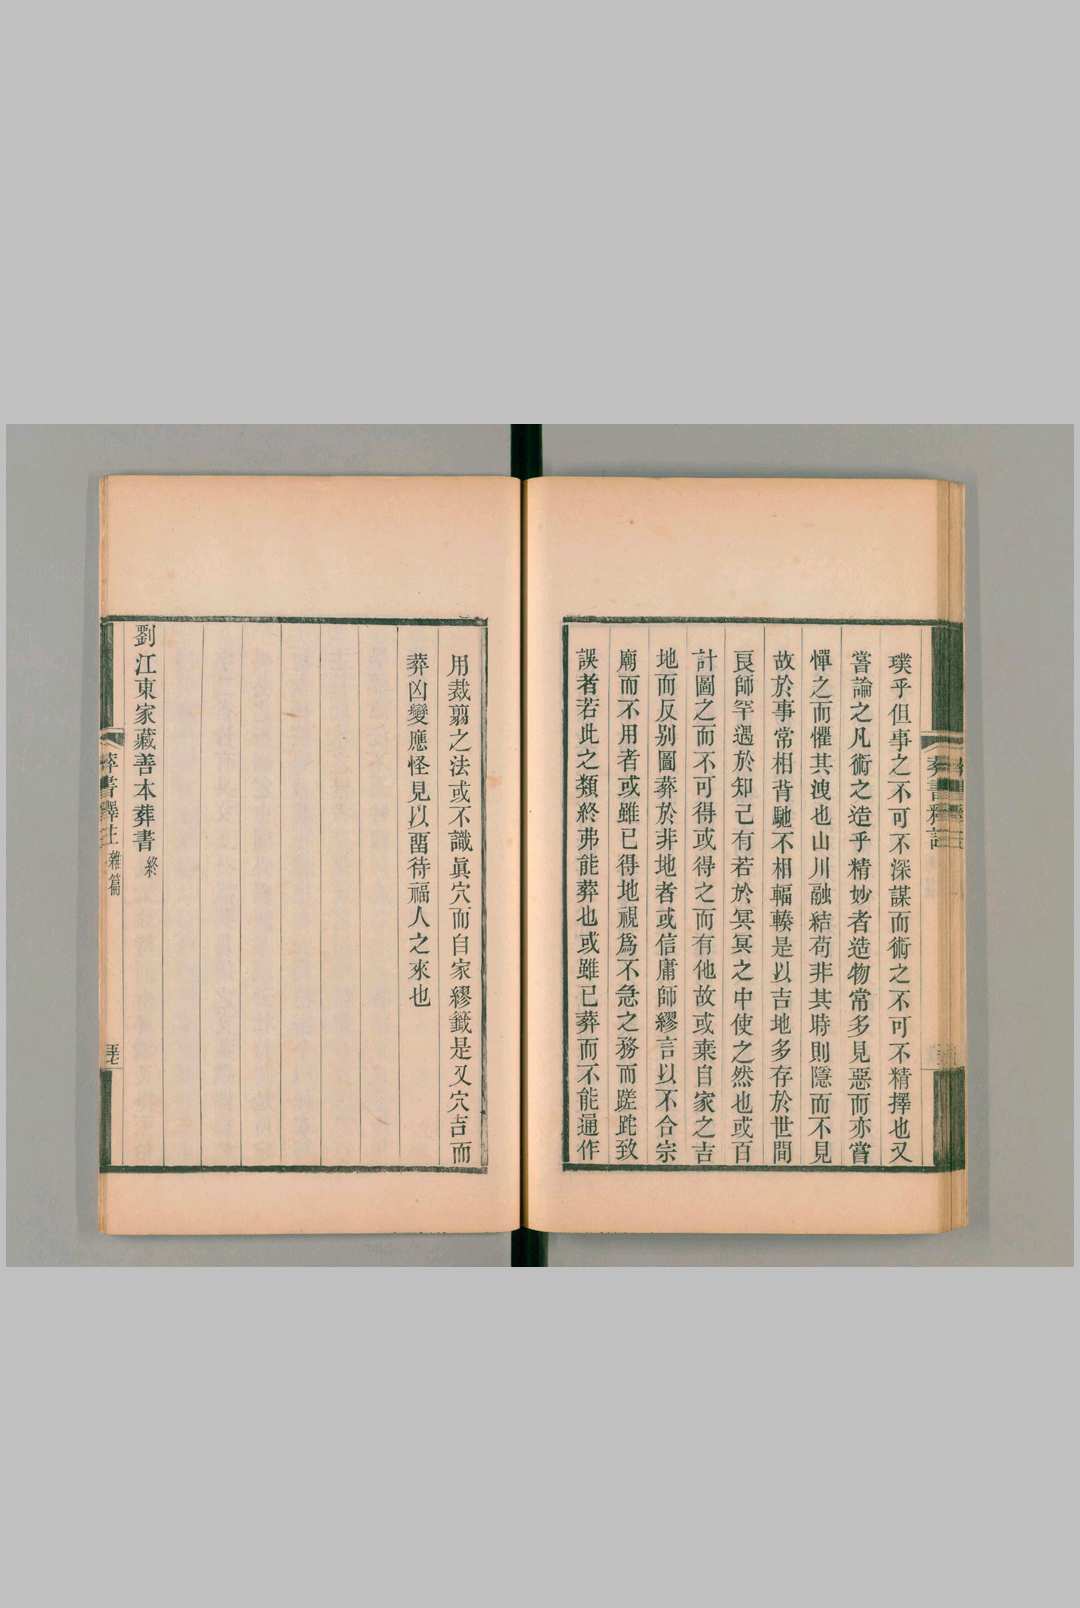 璞乎但事之不可不深謀而術之不可不精擇也又
嘗論之凡術之造乎精妙者造物常多見惡而亦嘗
憚之而懼其洩也山川融結苟非其時則隱而不見
故於事常相背馳不相輻輳是以吉地多存於世間
良師罕遇於知己有若於冥冥之中使之然也或百
計圖之而不可得或得之而有他故或棄自家之吉
地而反別圖葬於非地者或信庸師繆言以不合宗
廟而不用者或雖已得地視爲不急之務而蹉跎致
誤者若此之類終弗能葬也或雖已葬而不能逼作
用裁翦之法或不識眞穴而自家繆籤是又穴吉而
葬凶變應怪見以畱待福人之來也
劉江東家藏善本葬書終
葬書釋注 雜篇